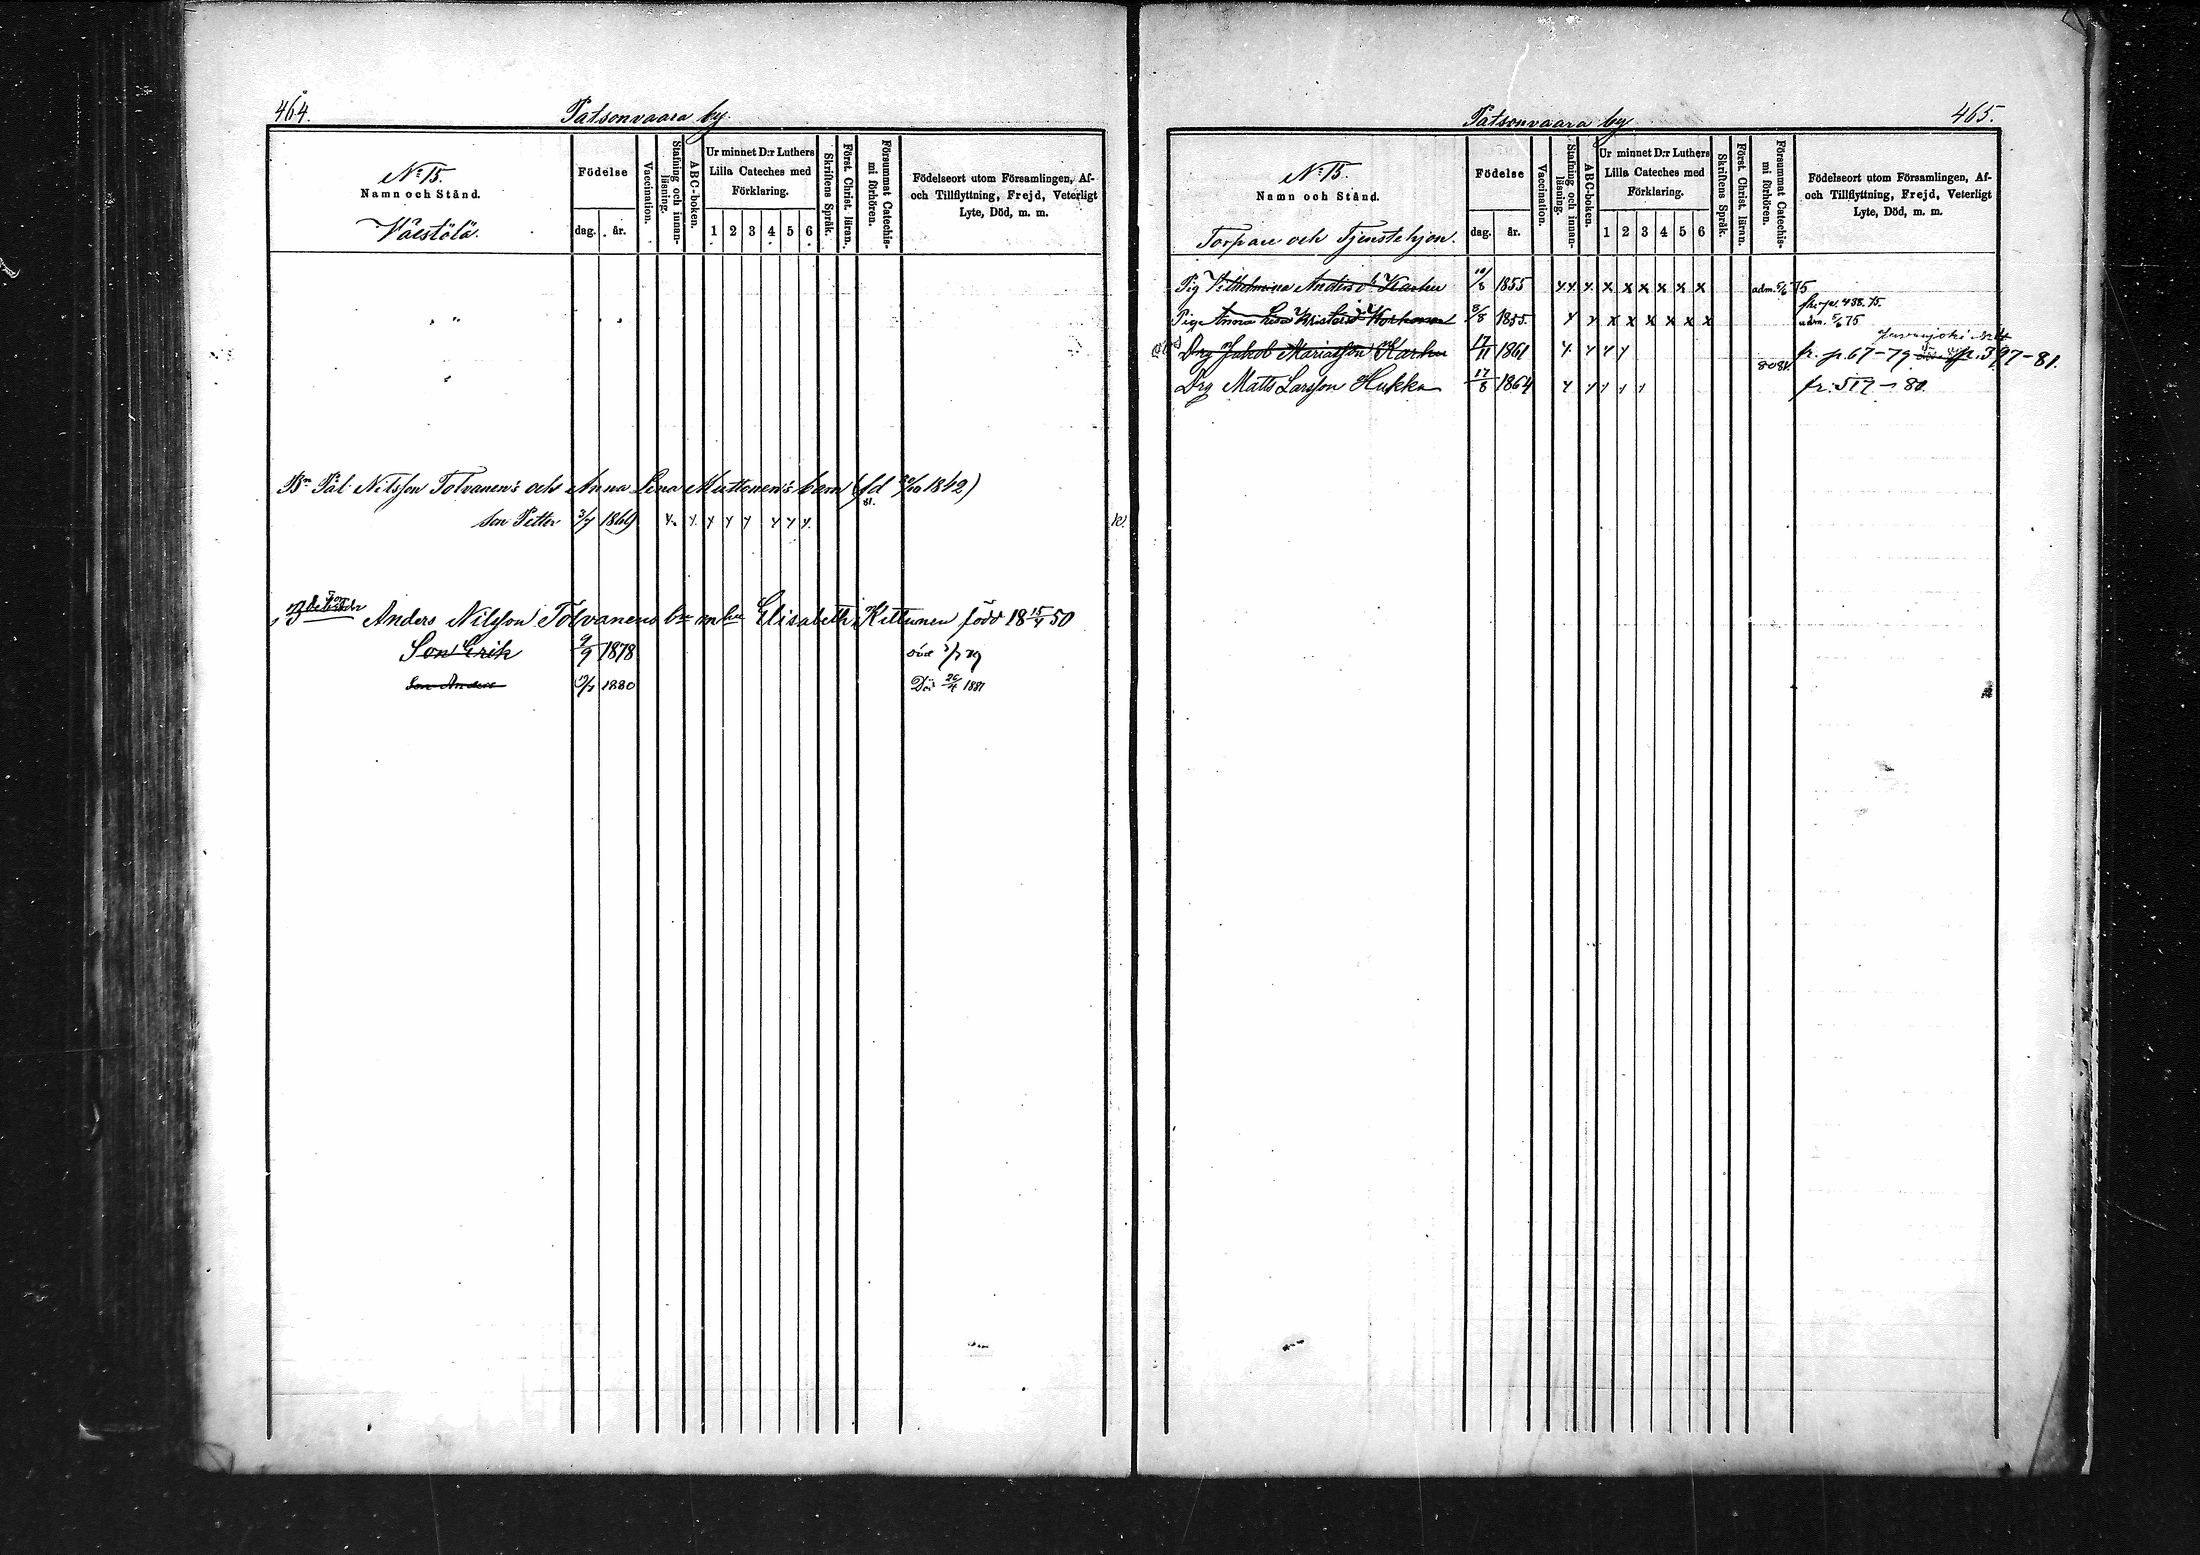 464.
Patsonvaara by.
No 15.
Namn och Stånd.
Födelse
dag. år.
Vaccination.
Stafning och innanläsning.
ABC-boken.
Ur minnet D:r Luthers
Lilla Cateches med
Förklaring.
1 2 3 4 5 6
Skriftens Språk.
Först. Christ. läran.
Försummat Catechismi förhören.
Födelseort utom Församlingen, Af-
och Tillflyttning, Frejd, Veterligt
Lyte, Död, m. m.
Bn Pål Nilsson Tolvanen's och Anna Lena Muttonen's barn (fd 1842)
Son Petter 3/7 1869
Anders Nilsson Tolvanens br m hu Elisabeth Kettunen född 18 15/4 50
Son Erik 9/9 1878
Son Anders 1880 Död 20/4 1881
Patsonvaara by
465.
No 15.
Namn och Stånd.
Torpare och Tjenstehjon.
Födelse
dag. år.
Vaccination.
Stafning och innanläsning.
ABC-boken.
Ur minnet D:r Luthers
Lilla Cateches med
Förklaring.
1 2 3 4 5 6
Skriftens Språk.
Först. Christ. läran.
Försummat Catechismi förhören.
Födelseort utom Församlingen, Af-
och Tillflyttning, Frejd, Veterligt
Lyte, Död, m. m.
Pig Vilhelmina Andersd:r Karhu 10/8 1855 x x x x x x adm. 5/6 75
Piga Anna Lisa Kristersd:r Korhonen 8/8 1855. x x x x x x adm. 5/6 75
Drg Jakob Mariasson Karhu 17/11 1861 fr. p. 67-79 p. 397-81.
Drg Matts Larsson Hukka 17/8 1864 fr. 517-80.